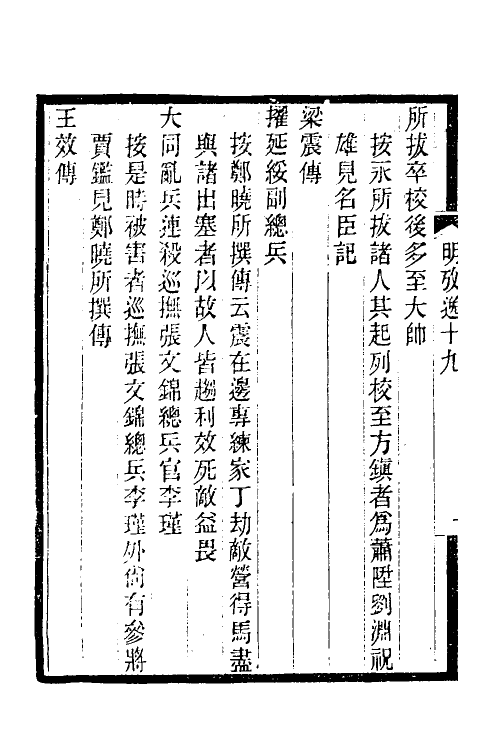 明攷逸十九
所拔卒校後多至大帥
按永所拔諸人其起列校至方鎮者爲蕭陞劉淵祝
雄見名臣記
梁震傳
擢延綏副總兵
按鄭曉所撰傳云震在邊專練家丁劫敵營得馬盡
與諸出塞者以故人皆趨利效死敵益畏
大同亂兵連殺巡撫張文錦總兵官李瑾
按是時被害者巡撫張文錦總兵李瑾外尙有參將
賈鑑見鄭曉所撰傳
王效傳